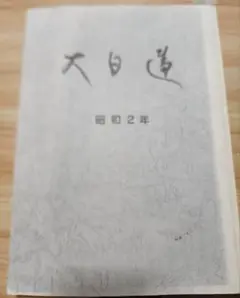 大日道
昭和2年